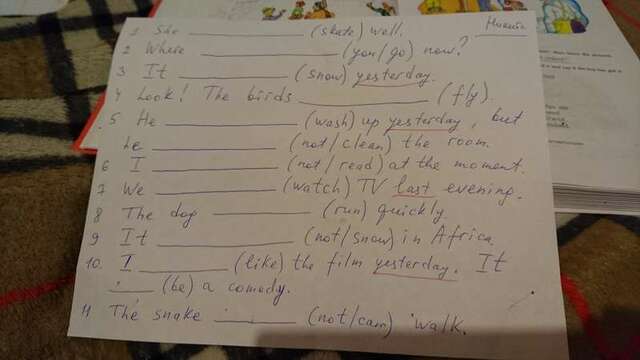 1 She ____________ (skate) well.
2 Where ____________ (you/go) now?
3 It ____________ (snow) yesterday.
4 Look! The birds ____________ (fly).
5 He ____________ (wash) up yesterday, but
he ____________ (not/clean) the room.
6 I ____________ (not/read) at the moment.
7 We ____________ (watch) TV last evening.
8 The dog ____________ (run) quickly.
9 It ____________ (not/snow) in Africa.
10. I ____________ (like) the film yesterday. It
____ (be) a comedy.
11 The snake ____________ (not/can) walk.